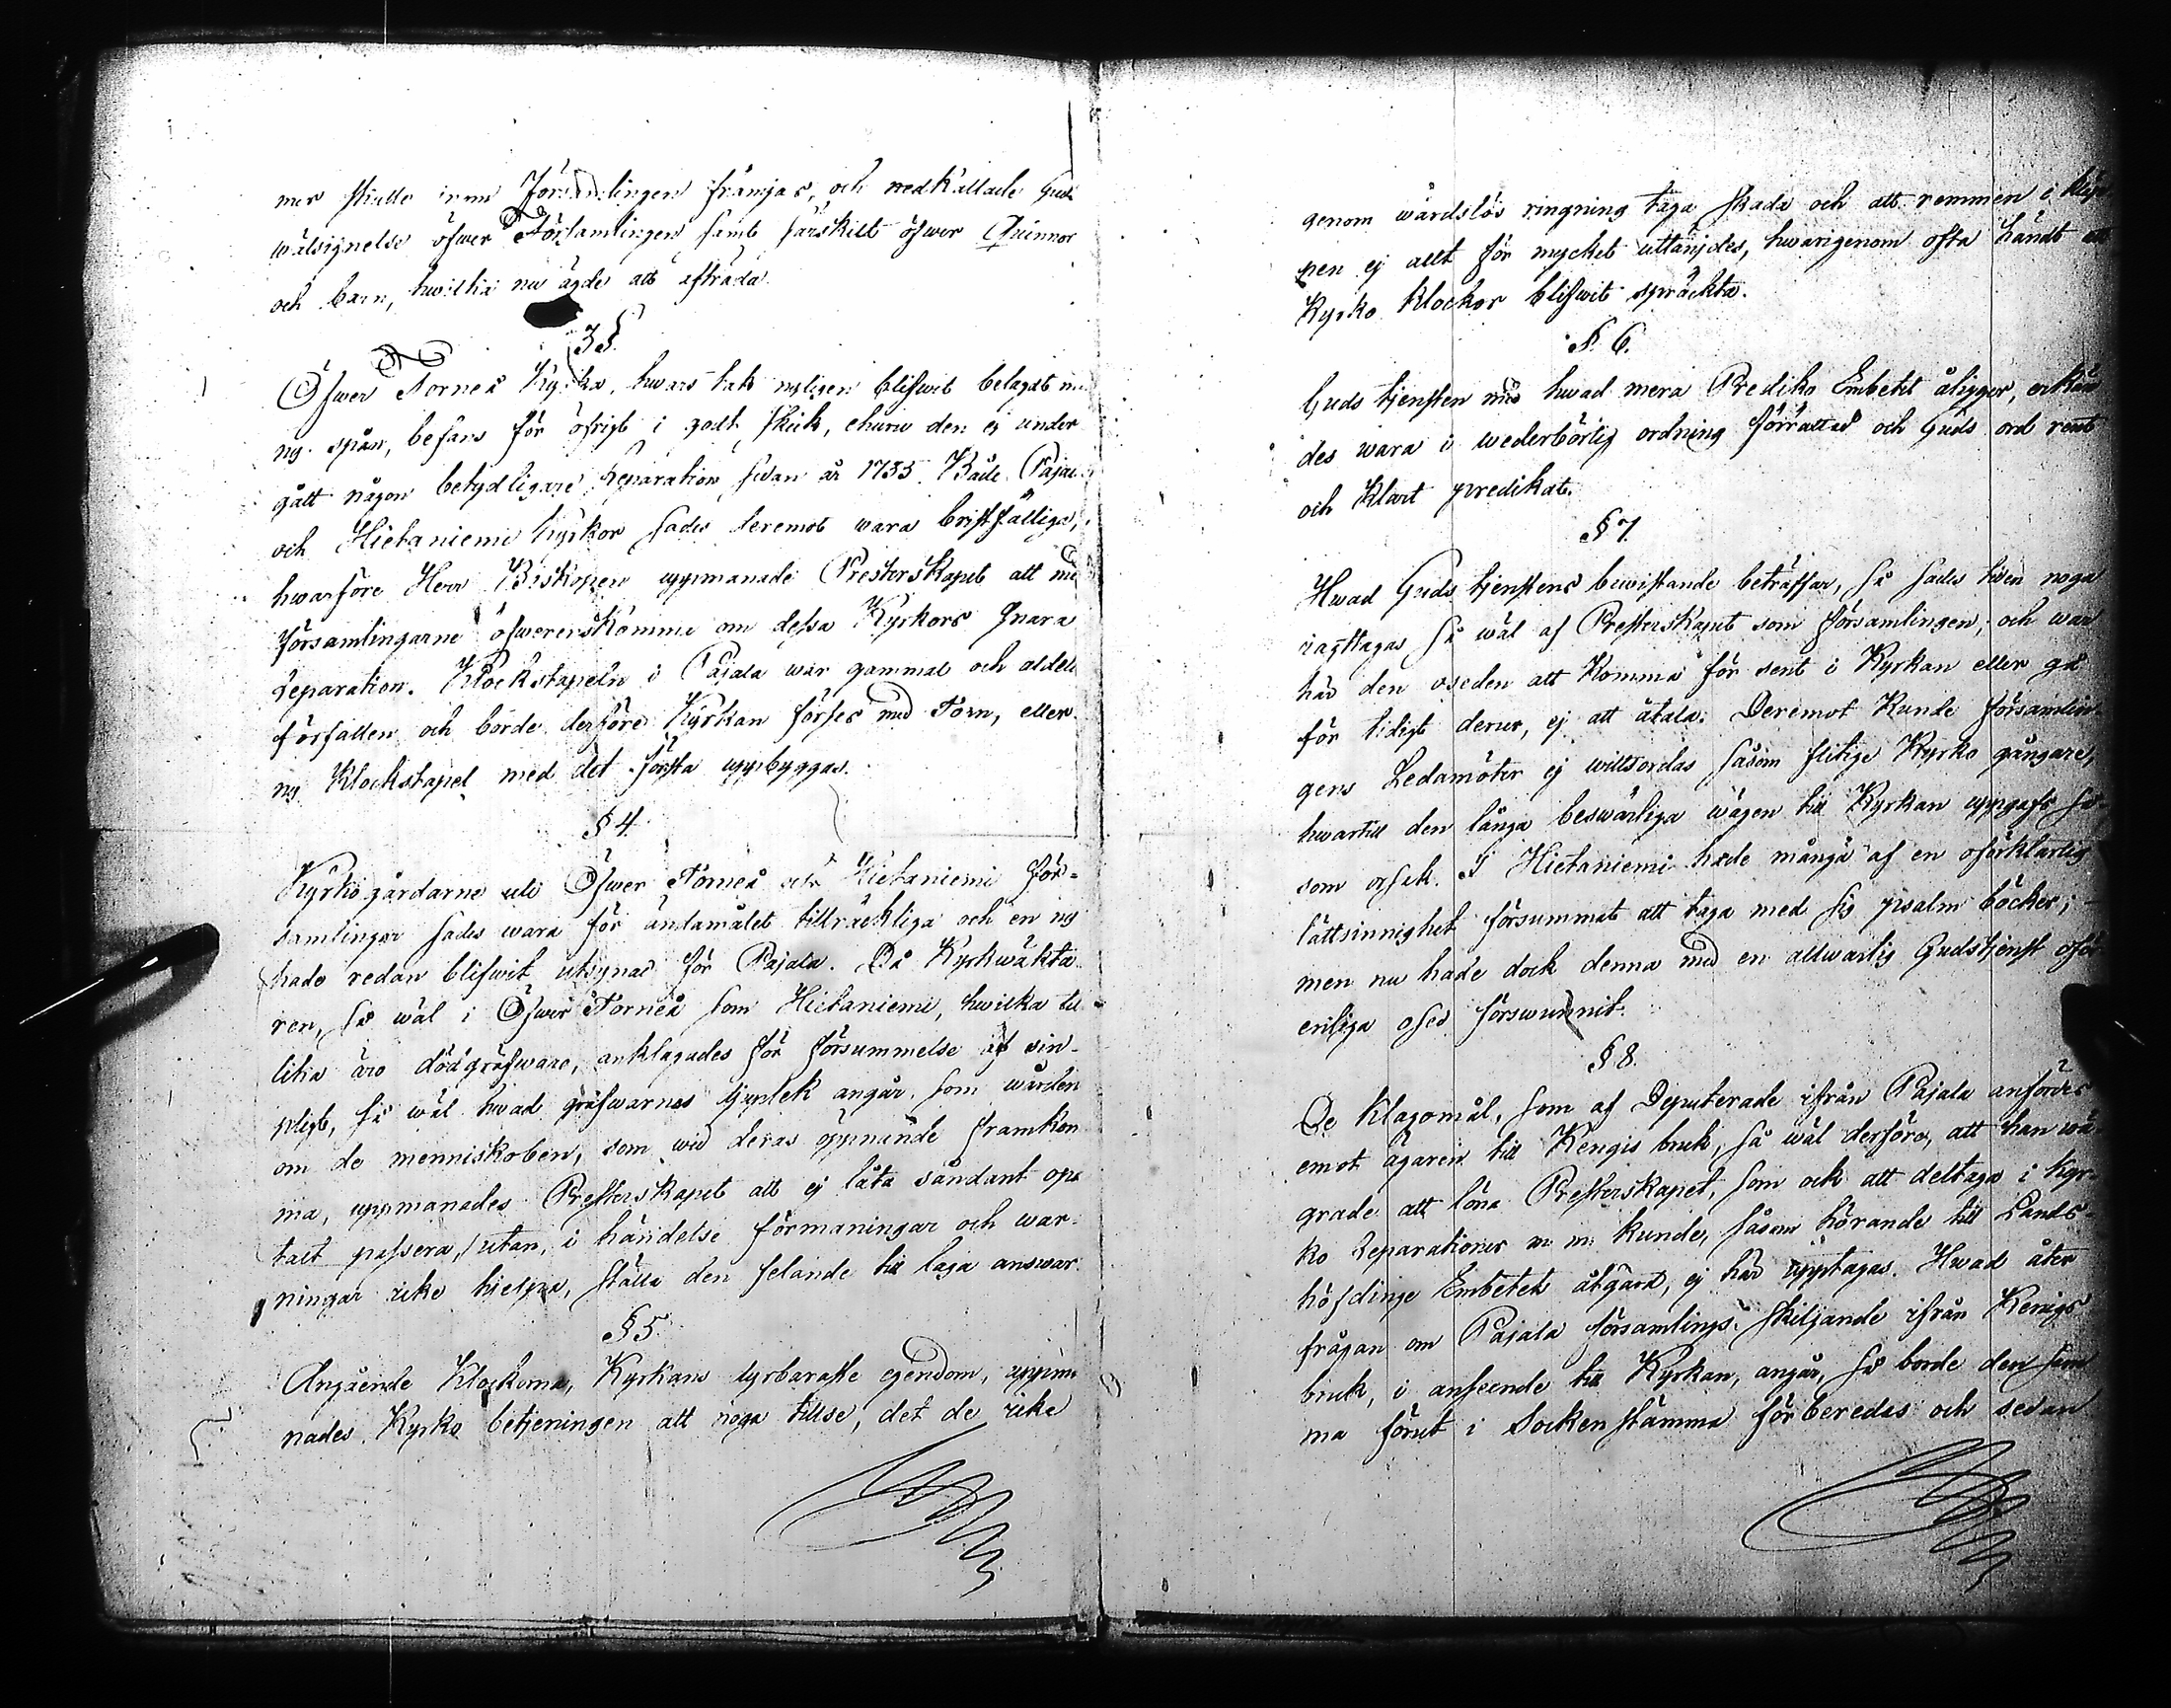 mer skulle inom Församlingen främjas, och nedkallade Guds
wälsignelse öfwer Församlingen samt särskilt öfwer Quinnor
och barn, hwilka nu ägde att afträda.
3 §.
Öfwer Torneå Kyrka, hwars tak nyligen blifwit belagdt med
ny spån, befans för öfrigt i godt skick, ehuru den ej under
gått någon betydligare Reparation sedan år 1735. Både Pajala
och Hietaniemi kyrkor sades deremot wara bristfälliga,
hwarföre Herr Biskopen uppmanade Presterskapet att med
församlingarne öfwerenskomma om dessa Kyrkors snara
Reparation. Klockstapeln i Pajala war gammal och aldeles
förfallen och borde derföre Kyrkan förses med Torn, eller
ny Klockstapel med det första uppbyggas.
§ 4
Kyrkogårdarne uti Öfwer Torneå och Hietaniemi För-
samlingar sades wara för ändamålet tillräckliga och en ny
hade redan blifwit utsynad för Pajala. Då Kyrkwäkta
ren, så wäl i Öfwer Torneå som Hietaniemi, hwilka til
lika äro dödgräfware, anklagades för försummelse af sin
pligt, så wäl hwad grafwarnes djuplek angår, som wården
om de menniskoben, som wid deras öppnande framkom
ma, uppmanades Presterskapet att ej låta såndant opå
talt passera, utan, i händelse förmaningar och war-
ningar icke hielpa, ställa den felande till laga answar.
§ 5.
Angående Klockorna, Kyrkans dyrbaraste egendom, uppma
nades Kyrko betjeningen att noga tillse, det de icke
genom wårdslös ringning taga skada och att remmen i kläp
pen ej allt för mycket uttänjdes, hwarigenom ofta händt att
Kyrko Klockor blifwit spräckta.
§. 6.
Gudstjensten med hwad mera Prediko Embetet åligger, erkän
des wara i wederbörlig ordning förrättad och Guds ord rent
och klart predikat.
§ 7.
Hwad Guds tjenstens bewistande beträffar, så sades tiden noga
iagttagas så wäl af Presterskapet som församlingen, och war
här den oseden att komma för sent i Kyrkan eller gå
för tidigt derur, ej att åtala. Deremot kunde församlin-
gens Ledamöter ej wittsordas såsom flitige Kyrko gångare,
hwartill den långa beswärliga wägen till Kyrkan uppgafs så-
som orsak. I Hietaniemi hade många af en oförklarlig
lättsinnighet försummat att taga med sig psalm böcker; -
men nu hade dock denna med en allwarlig Gudstjenst oför
enliga osed förswunnit.
§ 8.
De Klagomål, som af Deputerade ifrån Pajala anfördes
emot ägaren till Kengis bruk, så wäl derföre, att han wä-
grade att löna Presterskapet, som ock att deltaga i kyr-
ko Reparationer m m. kunde, såsom hörande till Lands-
höfdinge Embetets åtgärd, ej här upptagas. Hwad åter
frågan om Pajala församlings skiljande ifrån Kengis
bruk, i anseende till Kyrkan, angår, så borde den sam
ma förut i Sockenstämma förberedas och sedan